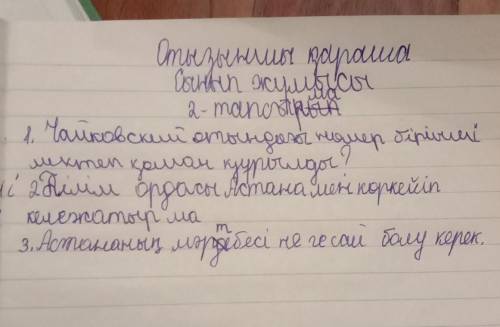 Отызыншы қараша
Сынып жұмысы
2-тапсырма
1. Чайковский атындағы нөмер бірінші
мектеп қашан құрылды?
2. Білім ордасы Астана мен көркейіп
кележатыр ма
3. Астананың мәртебесі не гесай болу керек.